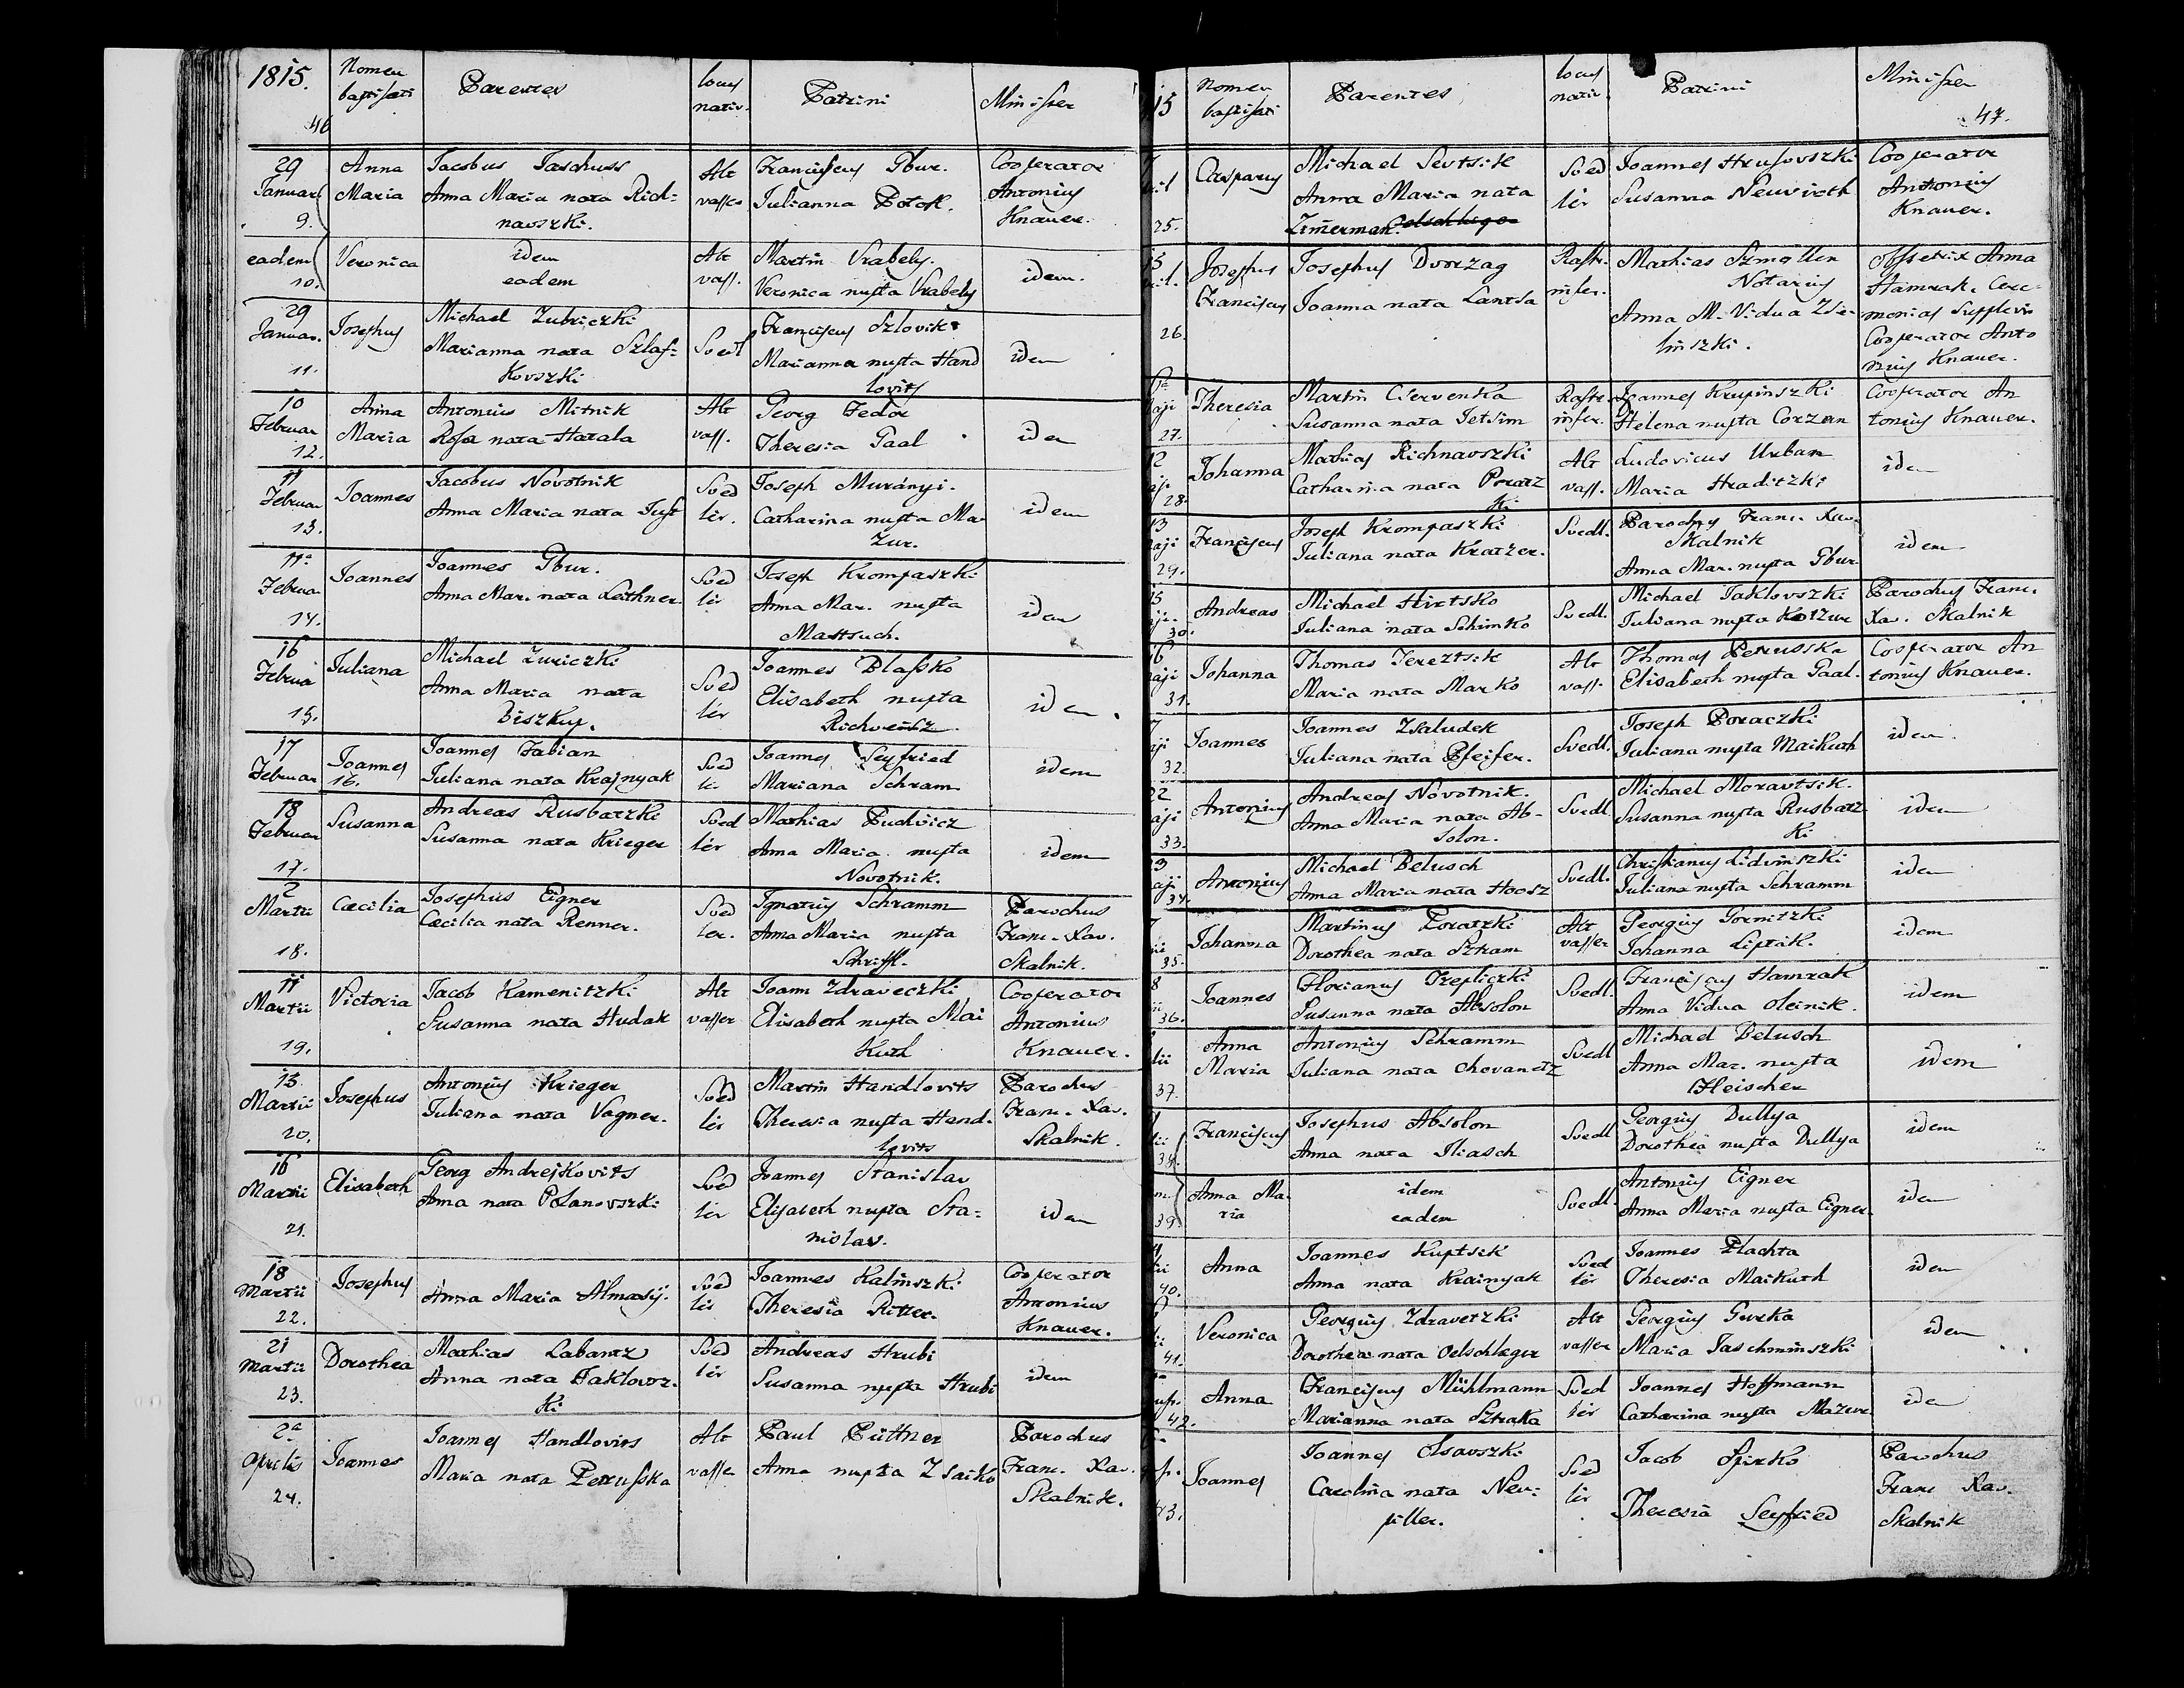 1815.
46
Nomen baptisati
Parentes
locus nativ.
Patrini
Minister
29 Januar. 9.
Anna Maria
Jacobus Taschuss
Anna Maria nata Rich=
navszki.
Alt vasser
Franciscus Gbur.
Julianna Potok.
Cooperator
Antonius
Knauer.
eadem 10.
Veronica
idem
eadem
Alt vass.
Martin Vrabely.
Veronica nupta Vrabely
idem.
29 Januar. 11.
Josephus
Michael Zubriczki
Marianna nata Szlaf=
kovszki
Svedl
Franciscus Szlovik
Marianna nupta Hand
lovits
idem
10 Februar 12.
Anna Maria
Antonius Mitnik
Rosa nata Harala
Alt vass.
Georg Fedor
Theresia Gaal
idem
11 Februar 13.
Joannes
Jacobus Novotnik
Anna Maria nata Just
Sved lér.
Joseph Murányi.
Catharina nupta Ma
zur.
idem
11a Februa 14.
Joannes
Joannes Gbur.
Anna Mar. nata Leithner
Sved lér
Joseph Krompaszki
Anna Mar. nupta
Mattsuch.
idem
16 Februa 15.
Juliana
Michael Zuriczki
Anna Maria nata
Biszkup.
Sved lér
Joannes Blasko
Elisabeth nupta
idem.
17 Februar 16.
Joannes
Joannes Fabian
Juliana nata Krajnyak
Sved lé
Joannes Seyfried
Mariana Schram
idem
18 Februar 17.
Susanna
Andreas Rusbatzki
Susanna nata Krieger
Sved lér
Mathias Pudvicz
Anna Maria nupta
Novotnik.
idem
2 Martii 18.
Cæcilia
Josephus Eigner
Cæcilia nata Renner.
Sved ler.
Ignatius Schramm
Anna Maria nupta
Schriffl.
Parochus
Franc. Xav.
Skalnik.
11 Martii 19.
Victoria
Jacob Kamenitzki
Susanna nata Hudak
Alt vasser
Joann Zdraveczki
Elisabeth nupta Mai
kuth
Cooperator
Antonius
Knauer.
13 Martii 20.
Josephus
Antonius Krieger
Juliana nata Vagner.
Sved lér
Martin Handlovits
Theresia nupta Hand.
lovits
Parochus
Franc. Xav.
Skalnik.
16 Martii 21.
Elisabeth
Georg Andrejkovits
Anna nata Polanovszki
Sved lér
Joannes Stanislav
Elisabeth nupta Sta=
nislav.
idem
18 Martii 22.
Josephus
Anna Maria Almasij.
Sved lér
Joannes Kalinszki
Theresia Ritter.
Cooperator
Antonius
Knauer.
21 Martii 23.
Dorothea
Mathias Labantz
Anna nata Jaklovsz.
ki
Sved lér
Andreas Hrubi
Susanna nupta Hrubi
idem
2a Aprilis 24.
Joannes
Joannes Handlovits
Maria nata Petrusska
Alt vasser
Paul Püttner
Anna nupta Zsaiko
Parochus
Franc. Xav.
Skalnik.
15
Nomen baptisati
Parentes
locus nativ.
Patrini
Minister
47.
25.
Casparus
Michael Sevtsik
Anna Maria nata
Zimerman.
Sved lér
Joannes Hrusovszki
Susanna Neuvirth
Cooperator
Antonius
Knauer.
26.
Josephus Franciscus
Josephus Dvorzag
Joanna nata Lantsa
Rastr. infer.
Mathias Szmollen
Notarius
Anna M. Vidua Zsie-
linszki.
Obstetrix Anna
Hamrak. Cere-
monias supplevit
Cooperator Anto
nius Knauer.
aji 27.
Theresia
Martin Cservenka
Susanna nata Jetsim
Rastr. infer.
Joannes Krupinszki
Helena nupta Corzan
Cooperator An
tonius Knauer.
12 28.
Johanna
Mathias Richnavszki
Catharina nata Poratz
ki
Alt vass.
Ludovicus Urban
Maria Hraditzki
idem
13 aji 29.
Franciscus
Joseph Krompaszki
Juliana nata Kratzer.
Svedl.
Parochus Franc. Xav.
Skalnik
Anna Mar. nupta Gbur
idem
15 30.
Andreas
Michael Hirtsko
Juliana nata Schimko
Svedl.
Michael Jaklovszki
Juliana nupta Kotzur
Parochus Franc.
Xav. Skalnik
16 aji 31.
Johanna
Thomas Jereztsik
Maria nata Marko
Alt vass.
Thomas Petrusska
Elisabeth nupta Gaal.
Cooperator An
tonius Knauer.
aji 32.
Joannes
Joannes Zsaludek
Juliana nata Pfeifer.
Svedl.
Joseph Poraczki
Juliana nupta Maikuth
idem.
22 aji 33.
Antonius
Andreas Novotnik.
Anna Maria nata Ab-
solon.
Svedl
Michael Moravtsik.
Susanna nupta Rusbatz
ki
idem
23 aji 34.
Antonius
Michael Belusch
Anna Maria nata Hoosz
Svedl.
Christianus Lidvinszki
Juliana nupta Schramm
idem
35.
Johanna
Martinus Poratzki
Dorothea nata Sztram
Alt vasser
Georgius Gornitzki
Johanna Liptik.
idem
36.
Joannes
Florianus Trepliczki
Susanna nata Absolon
Svedl.
Franciscus Hamrak
Anna Vidua Oleinik.
idem
37.
Anna Maria
Antonius Schramm
Juliana nata Chovanetz
Svedl
Michael Belusch
Anna Mar. nupta
Fleischer
idem
38.
Franciscus
Josephus Absolon
Anna nata Iliasch
Svedl
Georgius Dullya
Dorothea nupta Dullya
idem
39.
Anna Ma
ria
idem
eadem
Svedl.
Antonius Eigner
Anna Maria nupta Eigner
idem
40.
Anna
Joannes Kuptsik
Anna nata Krainyak
Sved lér
Joannes Plachta
Theresia Maikuth
idem
41.
Veronica
Georgius Zdravetzki
Dorothea nata Oelschleger
Alt vasser
Georgius Gurka
Maria Jaschminszki
idem
42.
Anna
Franciscus Mühlmann
Marianna nata Sztraka
Sved lér
Joannes Hoffmann
Catharina nupta Mazur
idem
43.
Joannes
Joannes Olsavszki
Carolina nata Neu=
siller.
Sved lér
Jacob Spirko
Theresia Seyfried
Parochus
Franc Xav.
Skalnik